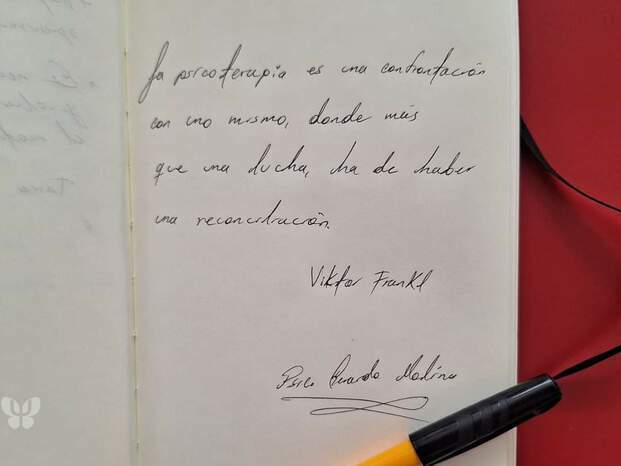 La psicoterapia es una confrontación
con uno mismo, donde más
que una lucha, ha de haber
una reconciliación.
Viktor Frankl
Psico Medina